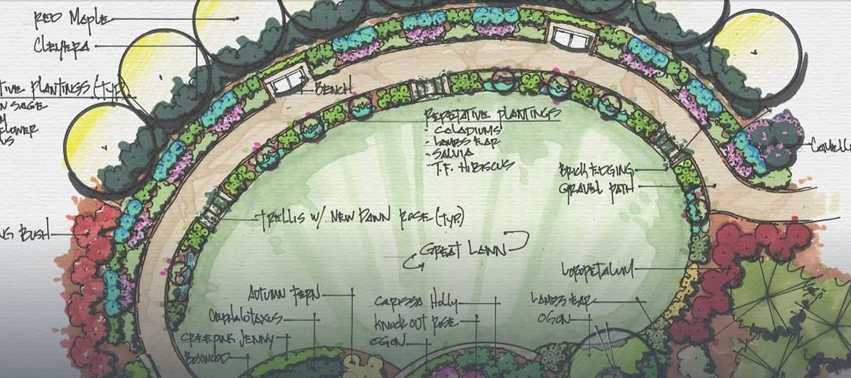 RED MAPLE
CLEYERA
TIVE PLANTINGS (TYP)
N SAGE
M
FLOWER
LS
BENCH
REPETATIVE PLANTINGS
- CALADIUMS
- LAMBS EAR
- SALVIA
- T.F. HIBISCUS
BRICK EDGING
GRAVEL PATH
CAMELL
TRELLIS W/ NEW DAWN ROSE (TYP.)
NG BUSH
GREAT LAWN
LOROPETALUM
AUTUMN FERN
CEPHALOTAXUS
CREEPING JENNY
BOXWOOD
CARISSA HOLLY
KNOCK OUT ROSE
OGON
LAMBS EAR
OGON